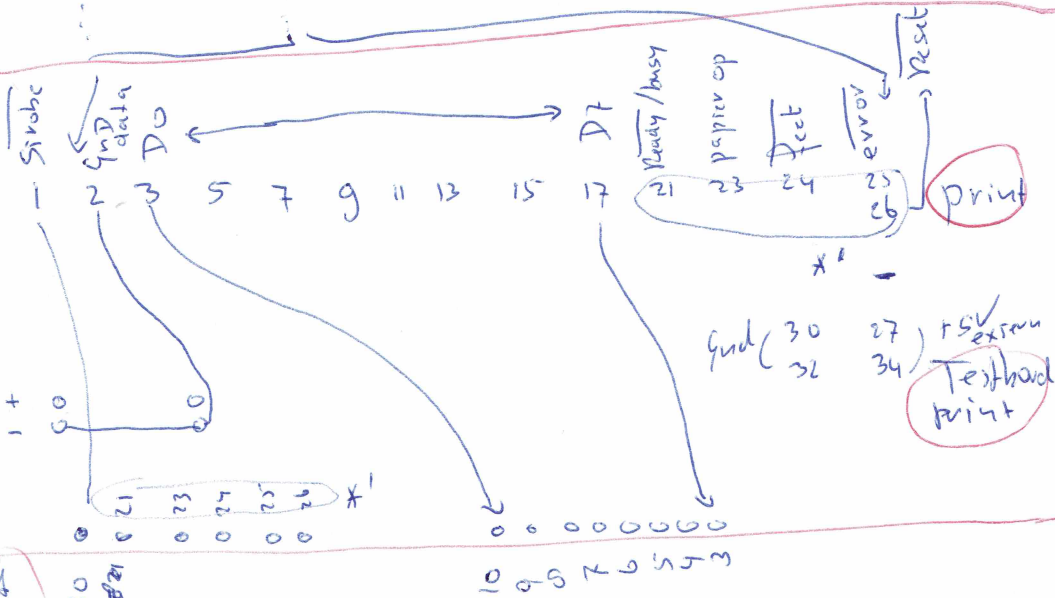 Strobe
GND data
D0
D7
Ready/busy
papier op
error
Reset
1 2 3 5 7 9 11 13 15 17 21 23 24 25
26
print
*'
-
Gnd ( 30 27 ) +5V extern
32 34
Testboard print
+ o o
- o o
21 23 24 25 26 *'
10 9 8 7 6 5 4 3